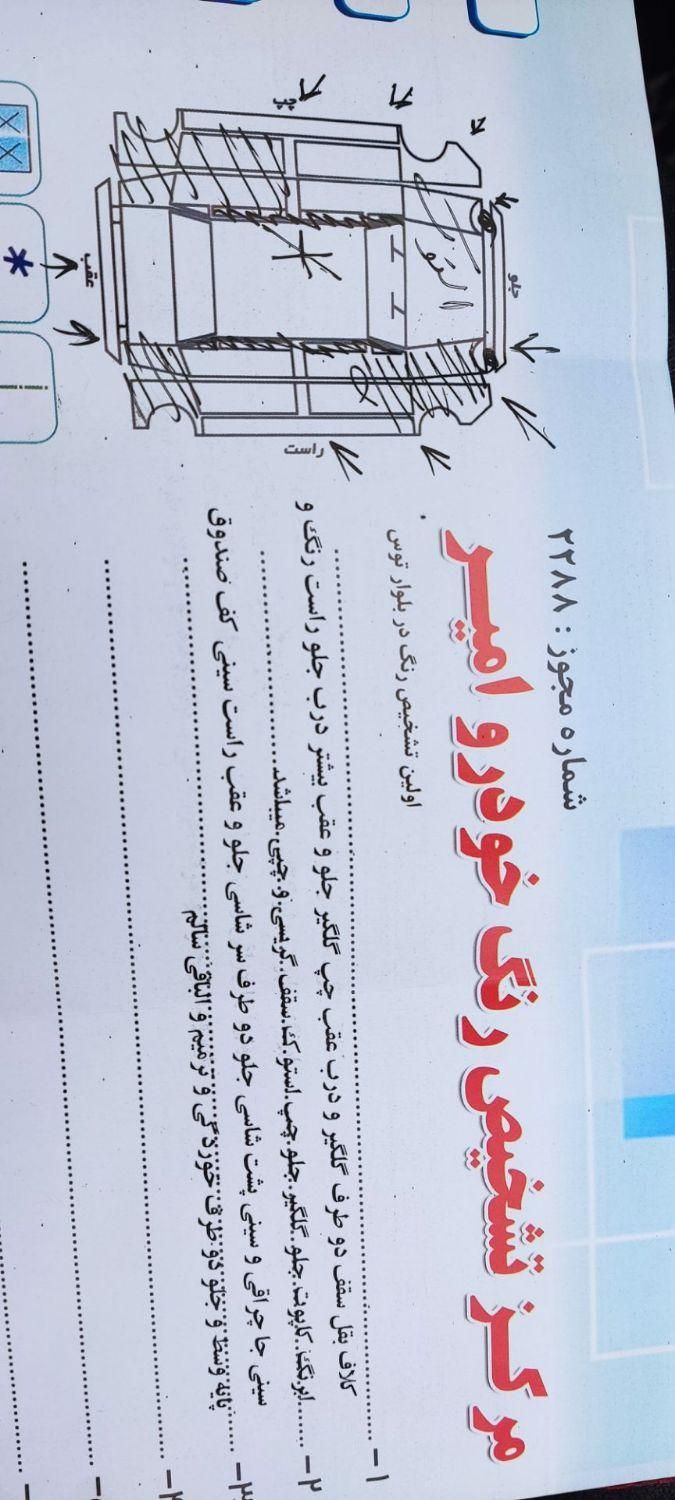 شماره مجوز : ۲۲۸۸
مرکز تشخیص رنگ خودرو امیر
اولین تشخیص رنگ در بلوار توس
۱- کلاف بغل سقف دو طرف گلگیر و درب عقب چپ گلگیر جلو و عقب بیشتر درب جلو راست رنگ و
۲- ابرنگ. کاپوت جلو. گلگیر جلو چپ. استوک. سقف. گریسی. و. چپی. میباشد.
۳- سینی جا چراغی و سینی پشت شاسی جلو دو طرف سر شاسی جلو و عقب راست سینی کف صندوق
پایه وسط و جلو دو طرف خوردگی و ترمیم و الباقی سالم
جلو
عقب
راست
چپ
استوک